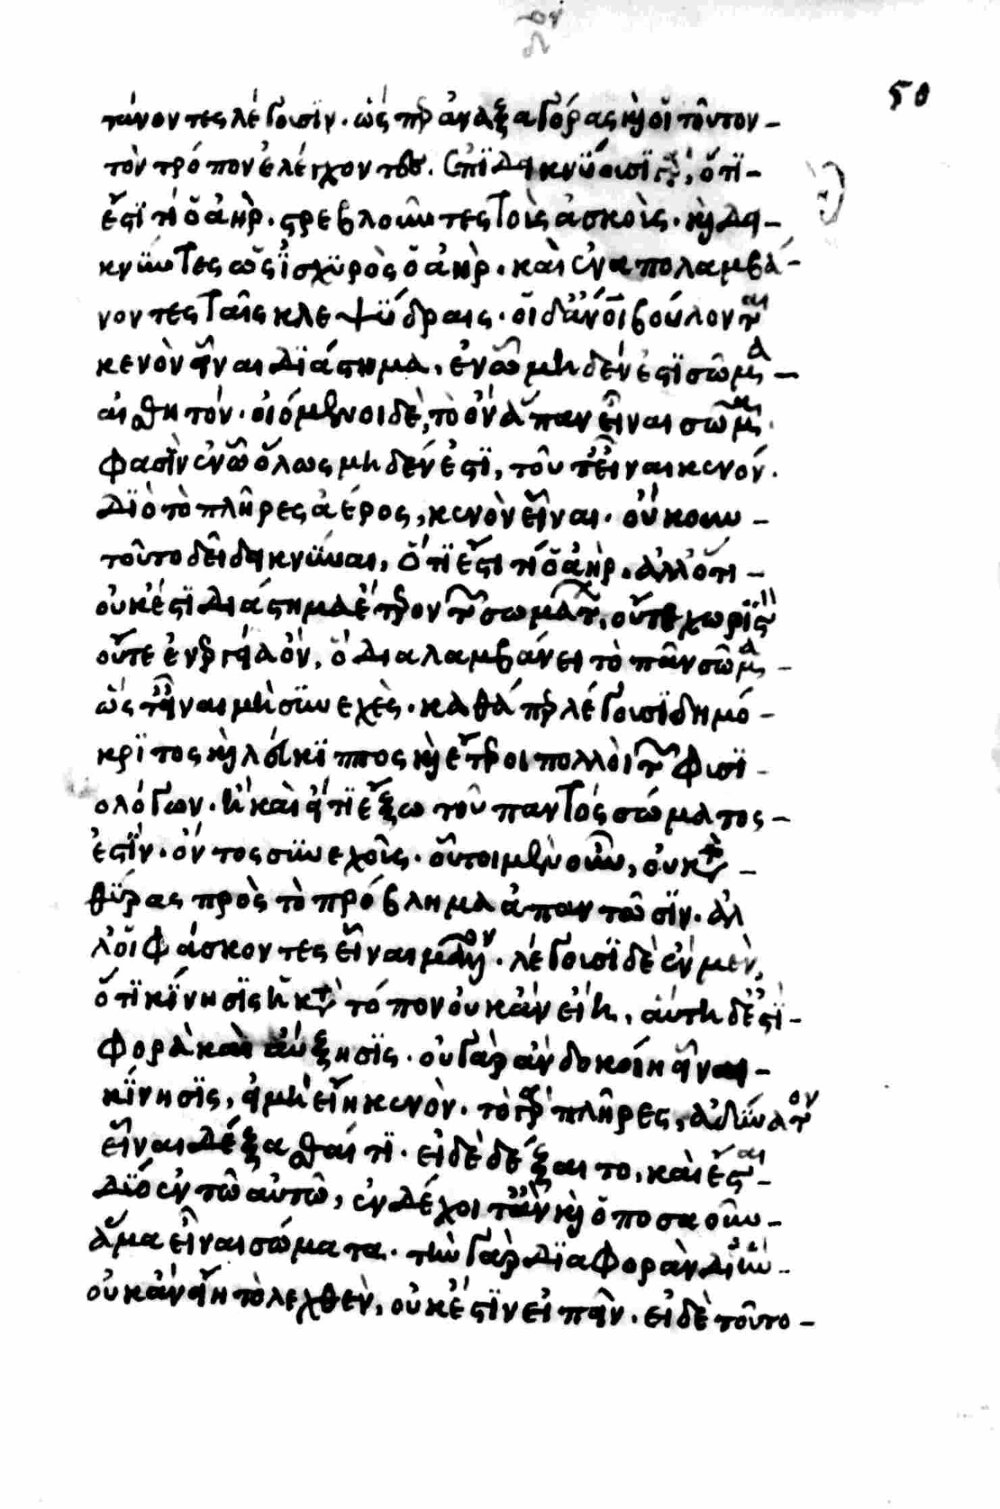 50
τάνοντες λέγουσϊν. ὥσπερ ἀναξαγόρας καὶ οἱ τοῦτον
τὸν τρόπον ἐλέγχοντες. ἐπϊδεικνύουσϊ γὰρ, ὅτϊ
ἔστϊ τὶ ὁ ἀήρ. στρεβλοῦντες τοὺς ἀσκοὺς. καὶ δει-
κνύντες ὡς ἰσχϋρὸς ὁ ἀήρ. καὶ ἐναπολαμβά-
νοντες ταῖς κλεψύδραις. οἱ δ' ἄνοι βούλονται
κενὸν εἶναι δϊάστημα, ἐν ὧ μηδέν ἐστϊ σῶμα
αἰσθητόν. οἰόμενοι δὲ, τὸ ὂν ἅπαν εἶναι σῶμα.
φασϊν ἐν ὧ ὅλως μηδέν ἐστϊ, τοῦτ' εἶναι κενόν.
Δϊὸ τὸ πλῆρες ἀέρος, κενὸν εἶναι. οὔκουν
τοῦτο δεῖ δεικνύναι, ὅτϊ ἔστι τὶ ὁ ἀήρ. ἀλλ' ὅτι
οὐκ ἔστϊ διάστημα ἕτερον τῶν σωμάτων, οὔτε χωρϊστὸν
οὔτε ἐνεργεία ὂν, ὃ διαλαμβάνει τὸ πᾶν σῶμα
ὥστ' εἶναι μὴ συνεχὲς. καθάπερ λέγουσϊ δημό-
κρϊτος καὶ λεύκϊππος καὶ ἕτεροι πολλοὶ τῶν φυσϊ
ολόγων. ἢ καὶ εἴ τϊ ἔξω τοῦ παντὸς σώματος
ἐστϊν. ὄντος συνεχοῦς. οὗτοι μὲν οὖν, οὐ κατὰ
θύρας πρὸς τὸ πρόβλημα ἀπαντῶσϊν. ἀλ
λ' οἱ φάσκοντες εἶναι μᾶλλον. λέγουσϊ δὲ ἓν μὲν,
ὅτϊ κίνησϊς ἡ κατὰ τόπον οὐκ ἂν εἴη, αὕτη δ' ἐστϊ
φορὰ καὶ αὔξησϊς. οὐ γὰρ ἂν δοκοίη εἶναι
κίνησϊς, εἰ μὴ εἴη κενὸν. τὸ γὰρ πλῆρες, ἀδύνατον
εἶναι δέξασθαί τϊ. εἰ δὲ δέξαιτο, καὶ ἔσται
δϊὸ ἐν τῶ αὐτῶ, ἐνδέχοιτ' ἂν καὶ ὁποσαοῦν
ἅμα εἶναι σώματα. τὴν γὰρ δϊαφορὰν δι' ἣν
οὐκ ἂν εἴη τὸ λεχθὲν, οὐκ ἔστϊν εἰπεῖν. εἰ δὲ τοῦτο